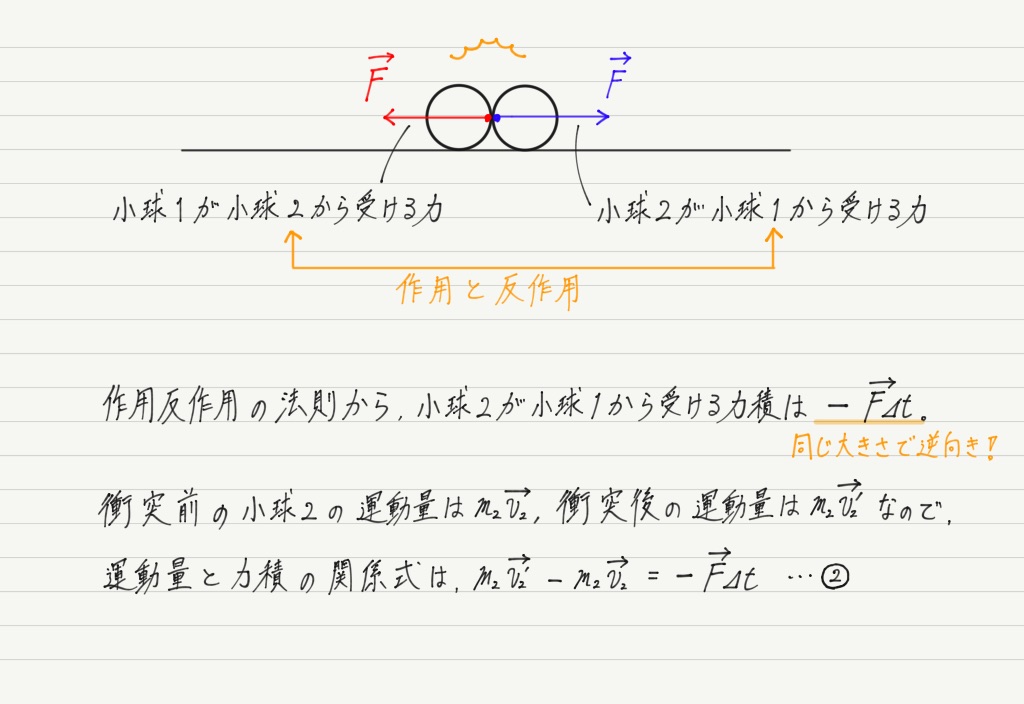 F→ F→
小球1が小球2から受ける力 小球2が小球1から受ける力
作用と反作用
作用反作用の法則から、小球2が小球1から受ける力積は −F→Δt。
同じ大きさで逆向き!
衝突前の小球2の運動量はm₂v₂→, 衝突後の運動量はm₂v₂′→なので、
運動量と力積の関係式は、m₂v₂′→ − m₂v₂→ = −F→Δt …②